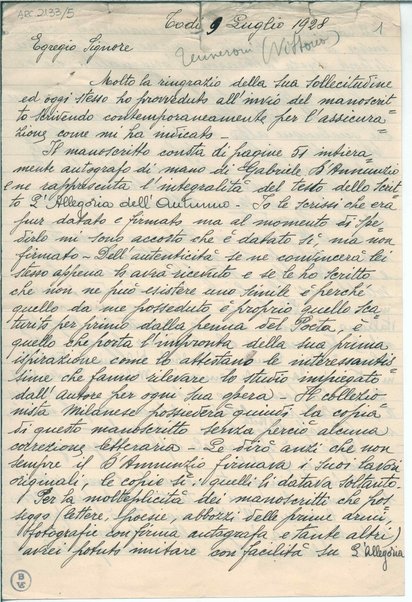 ARC. 2133/5
Todi 9 Luglio 1928
1
Egregio Signore
Tenneroni (Vittorio)
Molto la ringrazio della sua sollecitudine
ed oggi stesso ho provveduto all'invio del manoscrit=
to scrivendo contemporaneamente per l'assicura=
zione come mi ha indicato -
Il manoscritto consta di pagine 25 intiera=
mente autografo di mano di Gabriele D'Annunzio
e ne rappresenta l'integralità del testo dello scrit=
to L'Allegoria dell'Autunno - Io le scrissi che era
pur datato e firmato, ma al momento di spe=
dirlo mi sono accorto che è datato sì, ma non
firmato - Dell'autenticità se ne convincerà lei
stesso appena lo avrà ricevuto e se le ho scritto
che non ne può esistere uno simile è perché
quello da me posseduto è proprio quello sca=
turito per primo dalla penna del Poeta, e
quello che porta l'impronta della sua prima
ispirazione come lo attestano le interessantis=
sime che fanno rilevare lo studio impiegato
dall'Autore per ogni sua opera - Il collezio=
nista Milanese possiederà quindi la copia
di questo manoscritto senza perciò alcuna
correzione letteraria - Le dirò anzi che non
sempre il D'Annunzio firmava i suoi lavori
originali, le copie sì, quelli li datava soltanto.
Per la molteplicità dei manoscritti che pos=
seggo (lettere, poesie, abbozzi delle prime armi,
fotografie con firma autografa e tante altri)
avrei potuto imitare con facilità su L'Allegoria